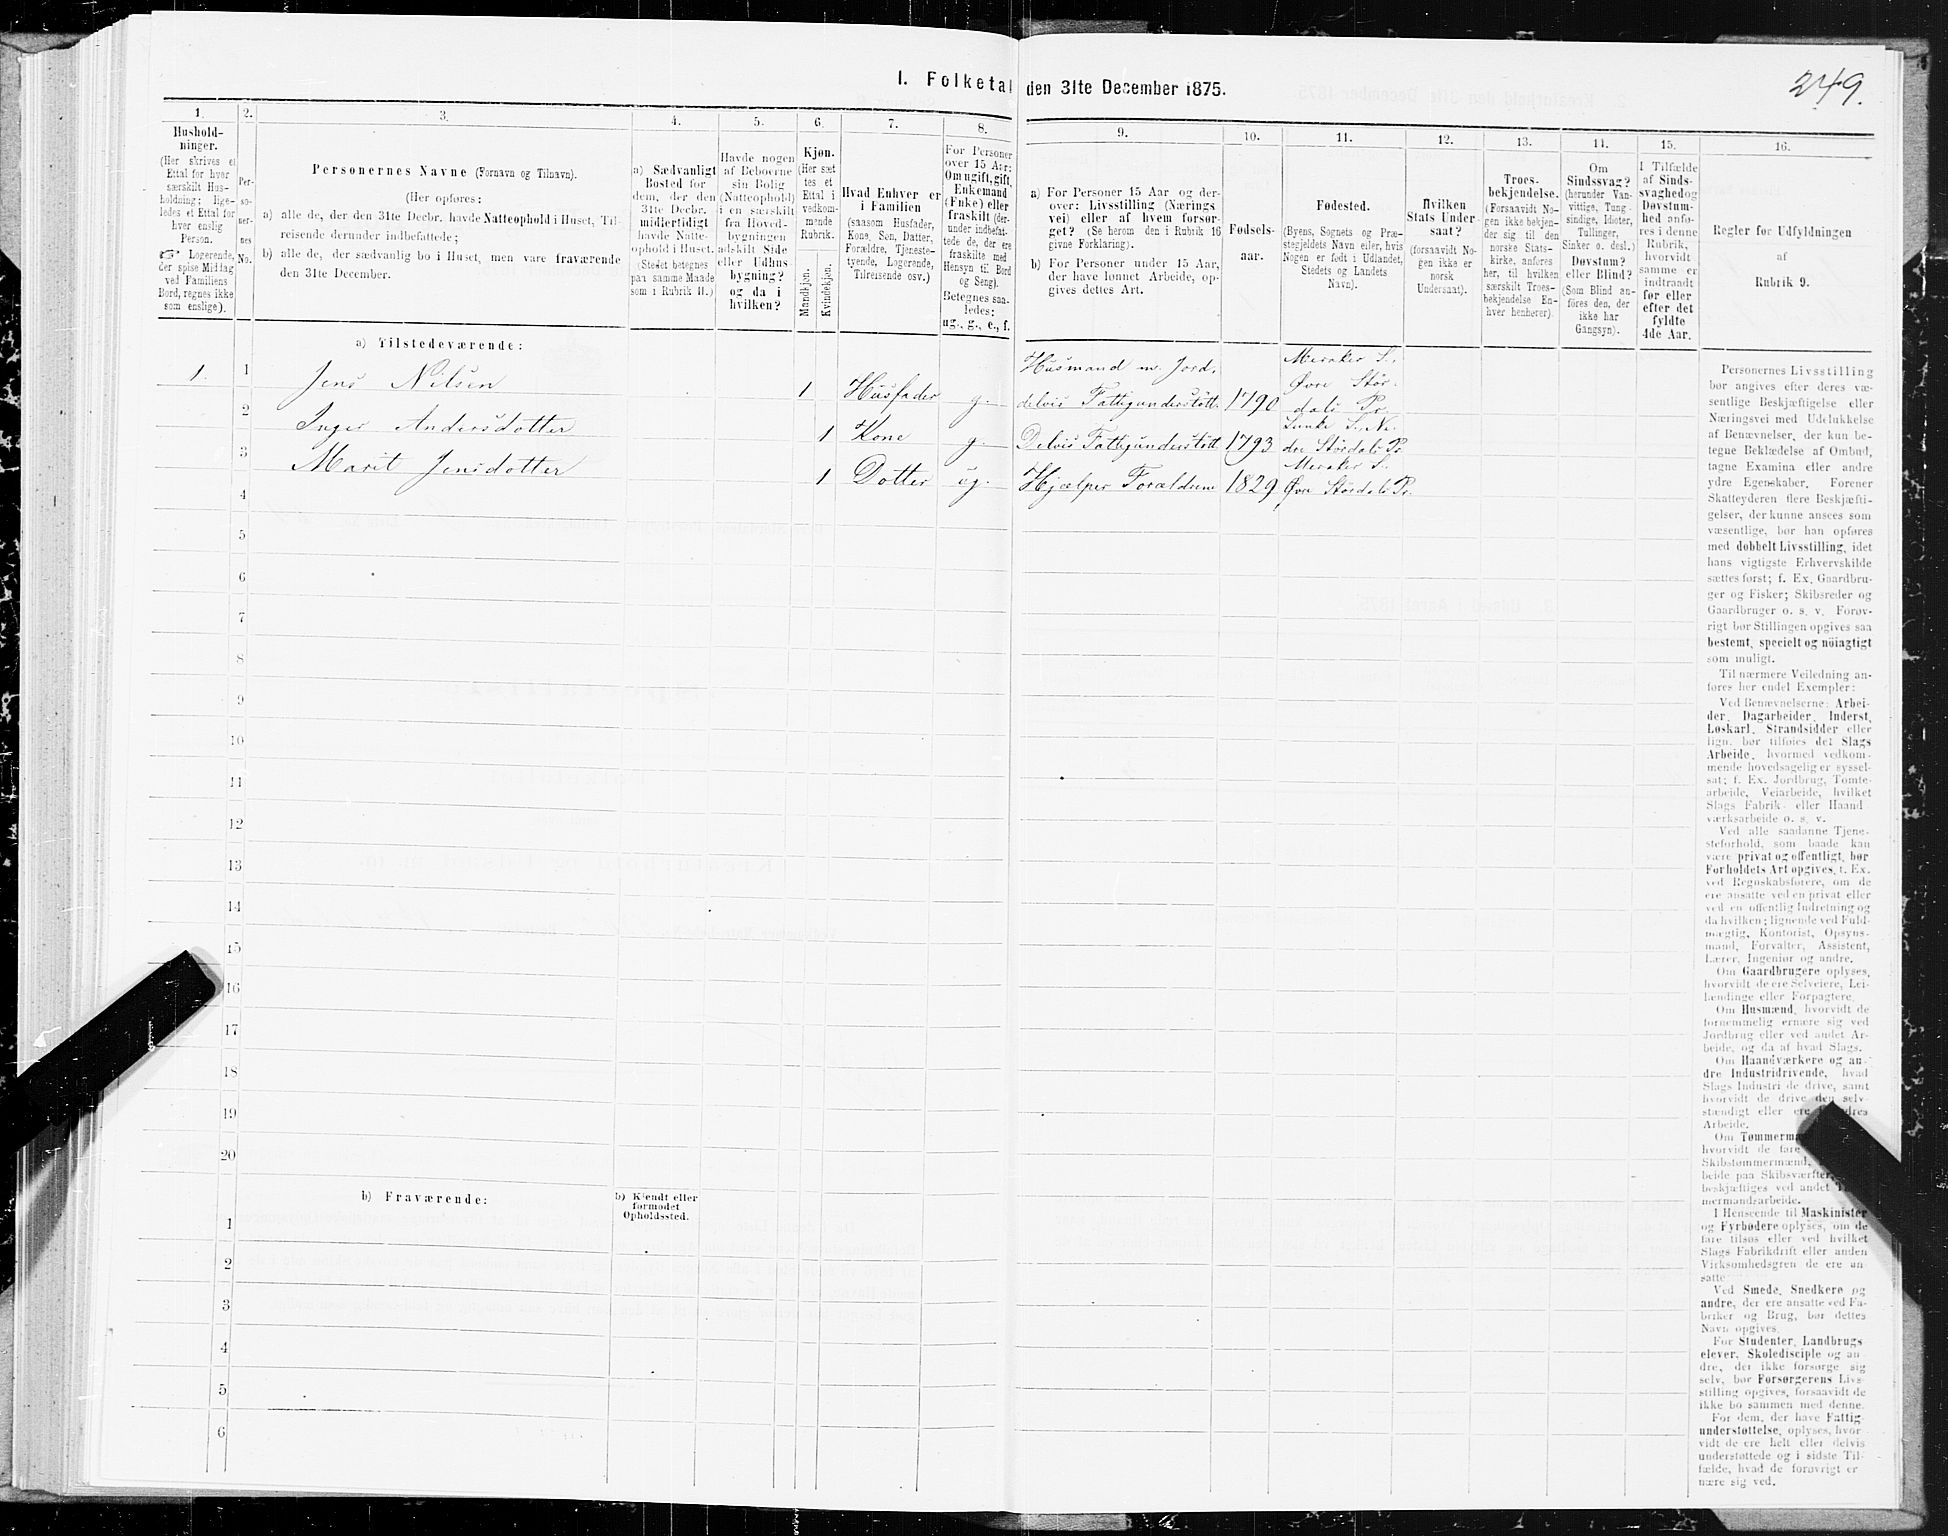 I. Folketal den 31te December 1875.
249.
1.
2.
3.
4.
5.
6.
7.
8.
9.
10.
11.
12.
13.
14.
15.
16.
Hushold-
ninger.
(Her skrives et
Ettal for hver
særskilt Hus-
holdning; lige-
ledes et Ettal for
hver enslig
Person.
☞ Logerende,
der spise Middag
ved Familiens
Bord, regnes ikke
som enslige).
Per-
so-
ner-
nes
No.
Personernes Navne (Fornavn og Tilnavn).
(Her opføres:
a) alle de, der den 31te Decbr. havde Natteophold i Huset, Til-
reisende derunder indbefattede;
b) alle de, der sædvanlig bo i Huset, men vare fraværende
den 31te December.
a) Sædvanligt
Bosted for
dem, der den
31te Decbr.
midlertidigt
havde Natte-
ophold i Huset.
(Stedet betegnes
paa samme Maade
som i Rubrik 11.)
Havde nogen
af Beboerne
sin Bolig
(Natteophold)
i en særskilt
fra Hoved-
bygningen
adskilt Side
eller Udhus-
bygning?
og da i
hvilken?
Kjøn.
(Her sæt-
tes et
Ettal i
vedkom-
mende
Rubrik.
Mandkjøn.
Kvindekjøn.
Hvad Enhver er
i Familien
(saasom Husfader,
Kone, Søn, Datter,
Forældre, Tjeneste-
tyende, Logerende,
Tilreisende osv.)
For Personer
over 15 Aar:
Om ugift, gift,
Enkemand
(Enke) eller
fraskilt (der-
under indbefat-
tede de, der ere
fraskilte med
Hensyn til Bord
og Seng).
Betegnes saa-
ledes:
ug., g., e., f.
a) For Personer 15 Aar og der-
over: Livsstilling (Nærings-
vei) eller af hvem forsør-
get? (Se herom den i Rubrik 16
givne Forklaring).
b) For Personer under 15 Aar,
der have lønnet Arbeide, op-
gives dettes Art.
Fødsels-
aar.
Fødested.
(Byens, Sognets og Præ-
stegjeldets Navn eller, hvis
Nogen er født i Udlandet,
Stedets og Landets
Navn).
Hvilken
Stats Under-
saat?
(forsaavidt No-
gen ikke er
norsk
Undersaat).
Troes-
bekjendelse.
(Forsaavidt No-
gen ikke bekjen-
der sig til den
norske Stats-
kirke, anføres
her, til hvilken
særskilt Troes-
bekjendelse En-
hver henhører).
Om
Sindssvag?
(herunder Van-
vittige, Tung-
sindige, Idioter,
Tullinger,
Sinker o. desl.)
Døvstum?
eller Blind?
(Som Blind an-
føres den, der
ikke har
Gangsyn).
I Tilfælde
af Sinds-
svaghed og
Døvstum-
hed anfø-
res i denne
Rubrik,
hvorvidt
samme er
indtraadt
før eller
efter det
fyldte
4de Aar.
Regler for Udfyldningen
af
Rubrik 9.
a) Tilstedeværende:
1. 1 Jens Nilsen 1 Husfader g. Husmand m. Jord. delvis Fattigunderstøtt. 1790 Meraker S. Øvre Stør-
dals Pr.
2 Inger Andersdotter 1 Kone g. Delvis Fattigunderstøtt 1793 Lunke S. Ne-
dre Stördals Pr
3 Marit Jensdotter 1 Dotter ug. Hjælper Forældrene 1829 Meraker S.
Øvre Stördals Pr.
4
5
6
7
8
9
10
11
12
13
14
15
16
17
18
19
20
b) Fraværende:
b) Kjendt eller
formodet
Opholdssted.
1
2
3
4
5
6
Personernes Livsstilling
bør angives efter deres væ-
sentlige Beskjæftigelse eller
Næringsvei med Udelukkelse
af Benævnelser, der kun be-
tegne Beklædelse af Ombud,
tagne Examina eller andre
ydre Egenskaber. Forener
Skatteyderen flere Beskjæfti-
gelser, der kunne ansees som
væsentlige, bør han opføres
med dobbelt Livsstilling, idet
hans vigtigste Erhvervskilde
sættes først; f. Ex. Gaardbru-
ger og Fisker; Skibsreder og
Gaardbruger o. s. v. Forøv-
rigt bør Stillingen opgives saa
bestemt, specielt og nøiagtigt
som muligt.
Til nærmere Veiledning an-
føres her endel Exempler:
Ved Benævnelserne: Arbei-
der, Dagarbeider, Inderst,
Løskarl, Strandsidder eller
lign. bør tilføies det Slags
Arbeide, hvormed vedkom-
mende hovedsagelig er syssel-
sat; f. Ex. Jordbrug, Tomte-
arbeide, Veiarbeide, hvilket
Slags Fabrik- eller Haand-
værksarbeide o. s. v.
Ved alle saadanne Tjene-
steforhold, som baade kan
være privat og offentligt, bør
Forholdets Art opgives, f. Ex.
ved Regnskabsførere, om de
ere ansatte ved en privat eller
ved en offentlig Indretning og
da hvilken; lignende ved Fuld-
mægtig, Kontorist, Opsyns-
mand, Forvalter, Assistent,
Lærer, Ingeniør og andre.
Om Gaardbrugere oplyses,
hvorvidt de ere Selveiere, Lei-
lændinge eller Forpagtere.
Om Husmænd, hvorvidt de
fornemmelig ernære sig ved
Jordbrug eller ved andet Ar-
beide, og da af hvad Slags.
Om Haandværkere og an-
dre Industridrivende, hvad
Slags Industri de drive, samt
hvorvidt de drive den selv-
stændigt eller ere
Arbeide.
Om
hvorvidt de fare
Skibstømmermænd,
beide paa Skibsværfter,
beskjæftiges ved andet
mermandsarbeide.
I Henseende til Maskinister
og Fyrbødere oplyses, om de
fare tilsøs eller ved hvilket
Slags Fabrikdrift eller anden
Virksomhedsgren de ere an-
satte.
Ved Smede, Snedkere og
andre, der ere ansatte ved Fa-
briker og Brug, bør dettes
Navn opgives.
For Studenter, Landbrugs-
elever, Skoledisciple og an-
dre, der ikke forsørge sig
selv, bør Forsørgerens Livs-
stilling opgives, forsaavidt de
ikke bo sammen med denne.
For dem, der have Fattig-
understøttelse, oplyses, hvor-
vidt de ere helt eller delvis
understøttede og i sidste Til-
fælde, hvad de forøvrigt er-
nære sig ved.